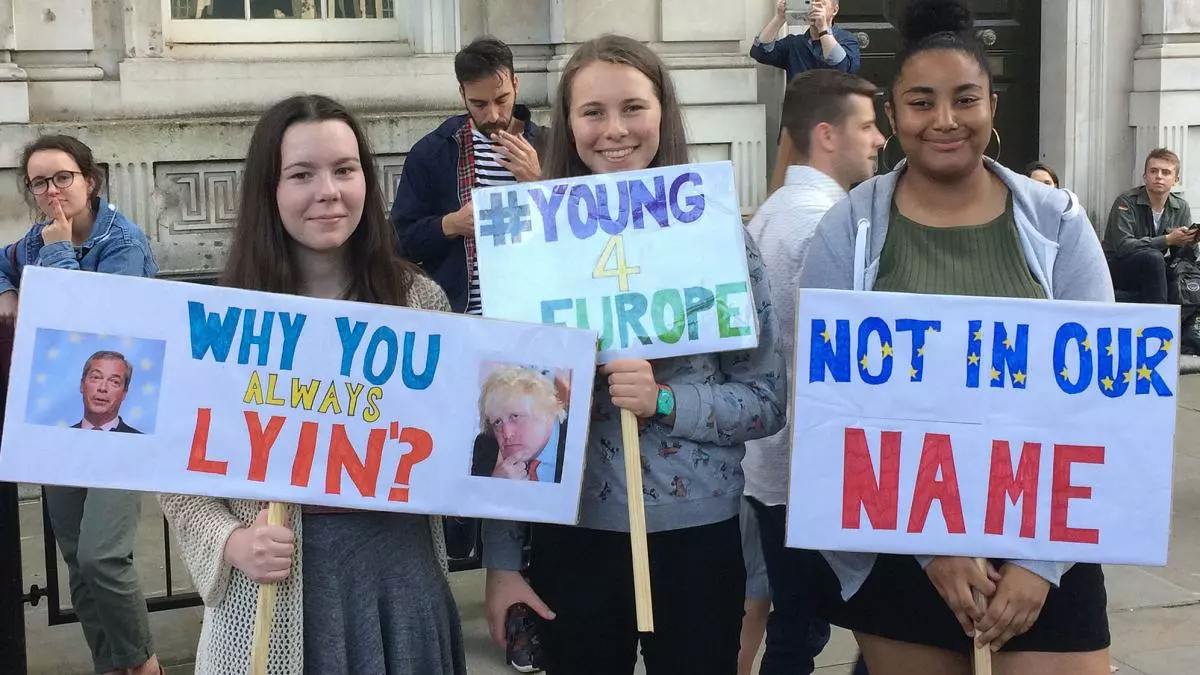 WHY YOU
ALWAYS
LYIN'?
#YOUNG
4
EUROPE
NOT IN OUR
NAME